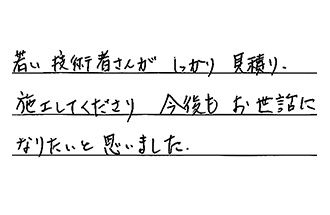 若い技術者さんが しっかり 見積り、
施工してくださり 今後も お世話に
なりたいと思いました.